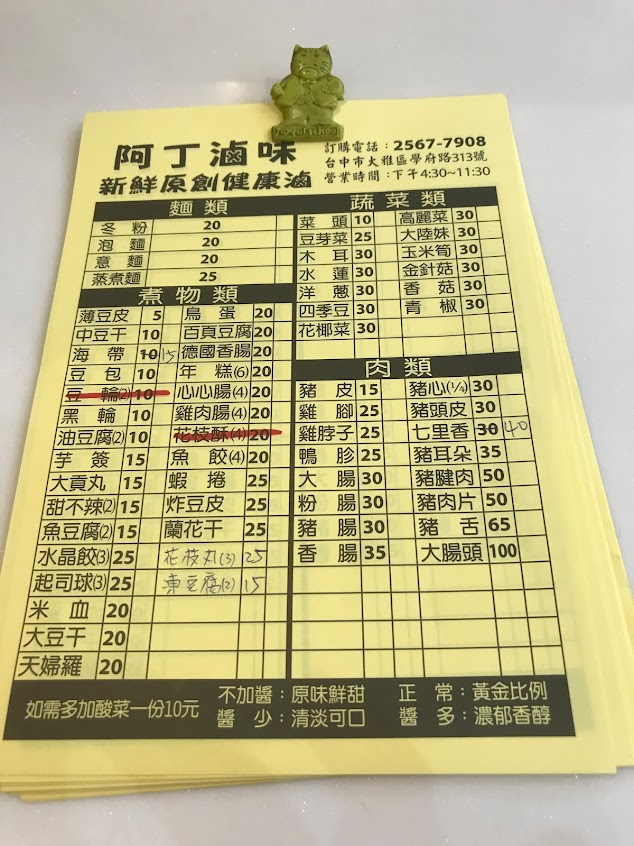 阿丁滷味
新鮮原創健康滷
訂購電話：2567-7908
台中市大雅區學府路313號
營業時間：下午4:30~11:30
麵類
冬粉 20
泡麵 20
意麵 20
蒸煮麵 25
煮物類
薄豆皮 5 鳥蛋 20
中豆干 10 百頁豆腐 20
海帶 10 15 德國香腸 20
豆包 10 年糕(6) 20
豆輪(2) 10 心心腸(4) 20
黑輪 10 雞肉腸(4) 20
油豆腐(2) 10 花枝酥(4) 20
芋簽 15 魚餃(4) 20
大貢丸 15 蝦捲 25
甜不辣(2) 15 炸豆皮 25
魚豆腐(2) 15 蘭花干 25
水晶餃(3) 25 花枝丸(3) 25
起司球(3) 25 東豆腐(2) 15
米血 20
大豆干 20
天婦羅 20
蔬菜類
菜頭 10 高麗菜 30
豆芽菜 25 大陸妹 30
木耳 30 玉米筍 30
水蓮 30 金針菇 30
洋蔥 30 香菇 30
四季豆 30 青椒 30
花椰菜 30
肉類
豬皮 15 豬心(1/4) 30
雞腳 25 豬頭皮 30
雞脖子 25 七里香 30 40
鴨胗 25 豬耳朵 35
大腸 30 豬腱肉 50
粉腸 30 豬肉片 50
豬腸 30 豬舌 65
香腸 35 大腸頭 100
如需多加酸菜一份10元
不加醬：原味鮮甜 正常：黃金比例
醬少：清淡可口 醬多：濃郁香醇